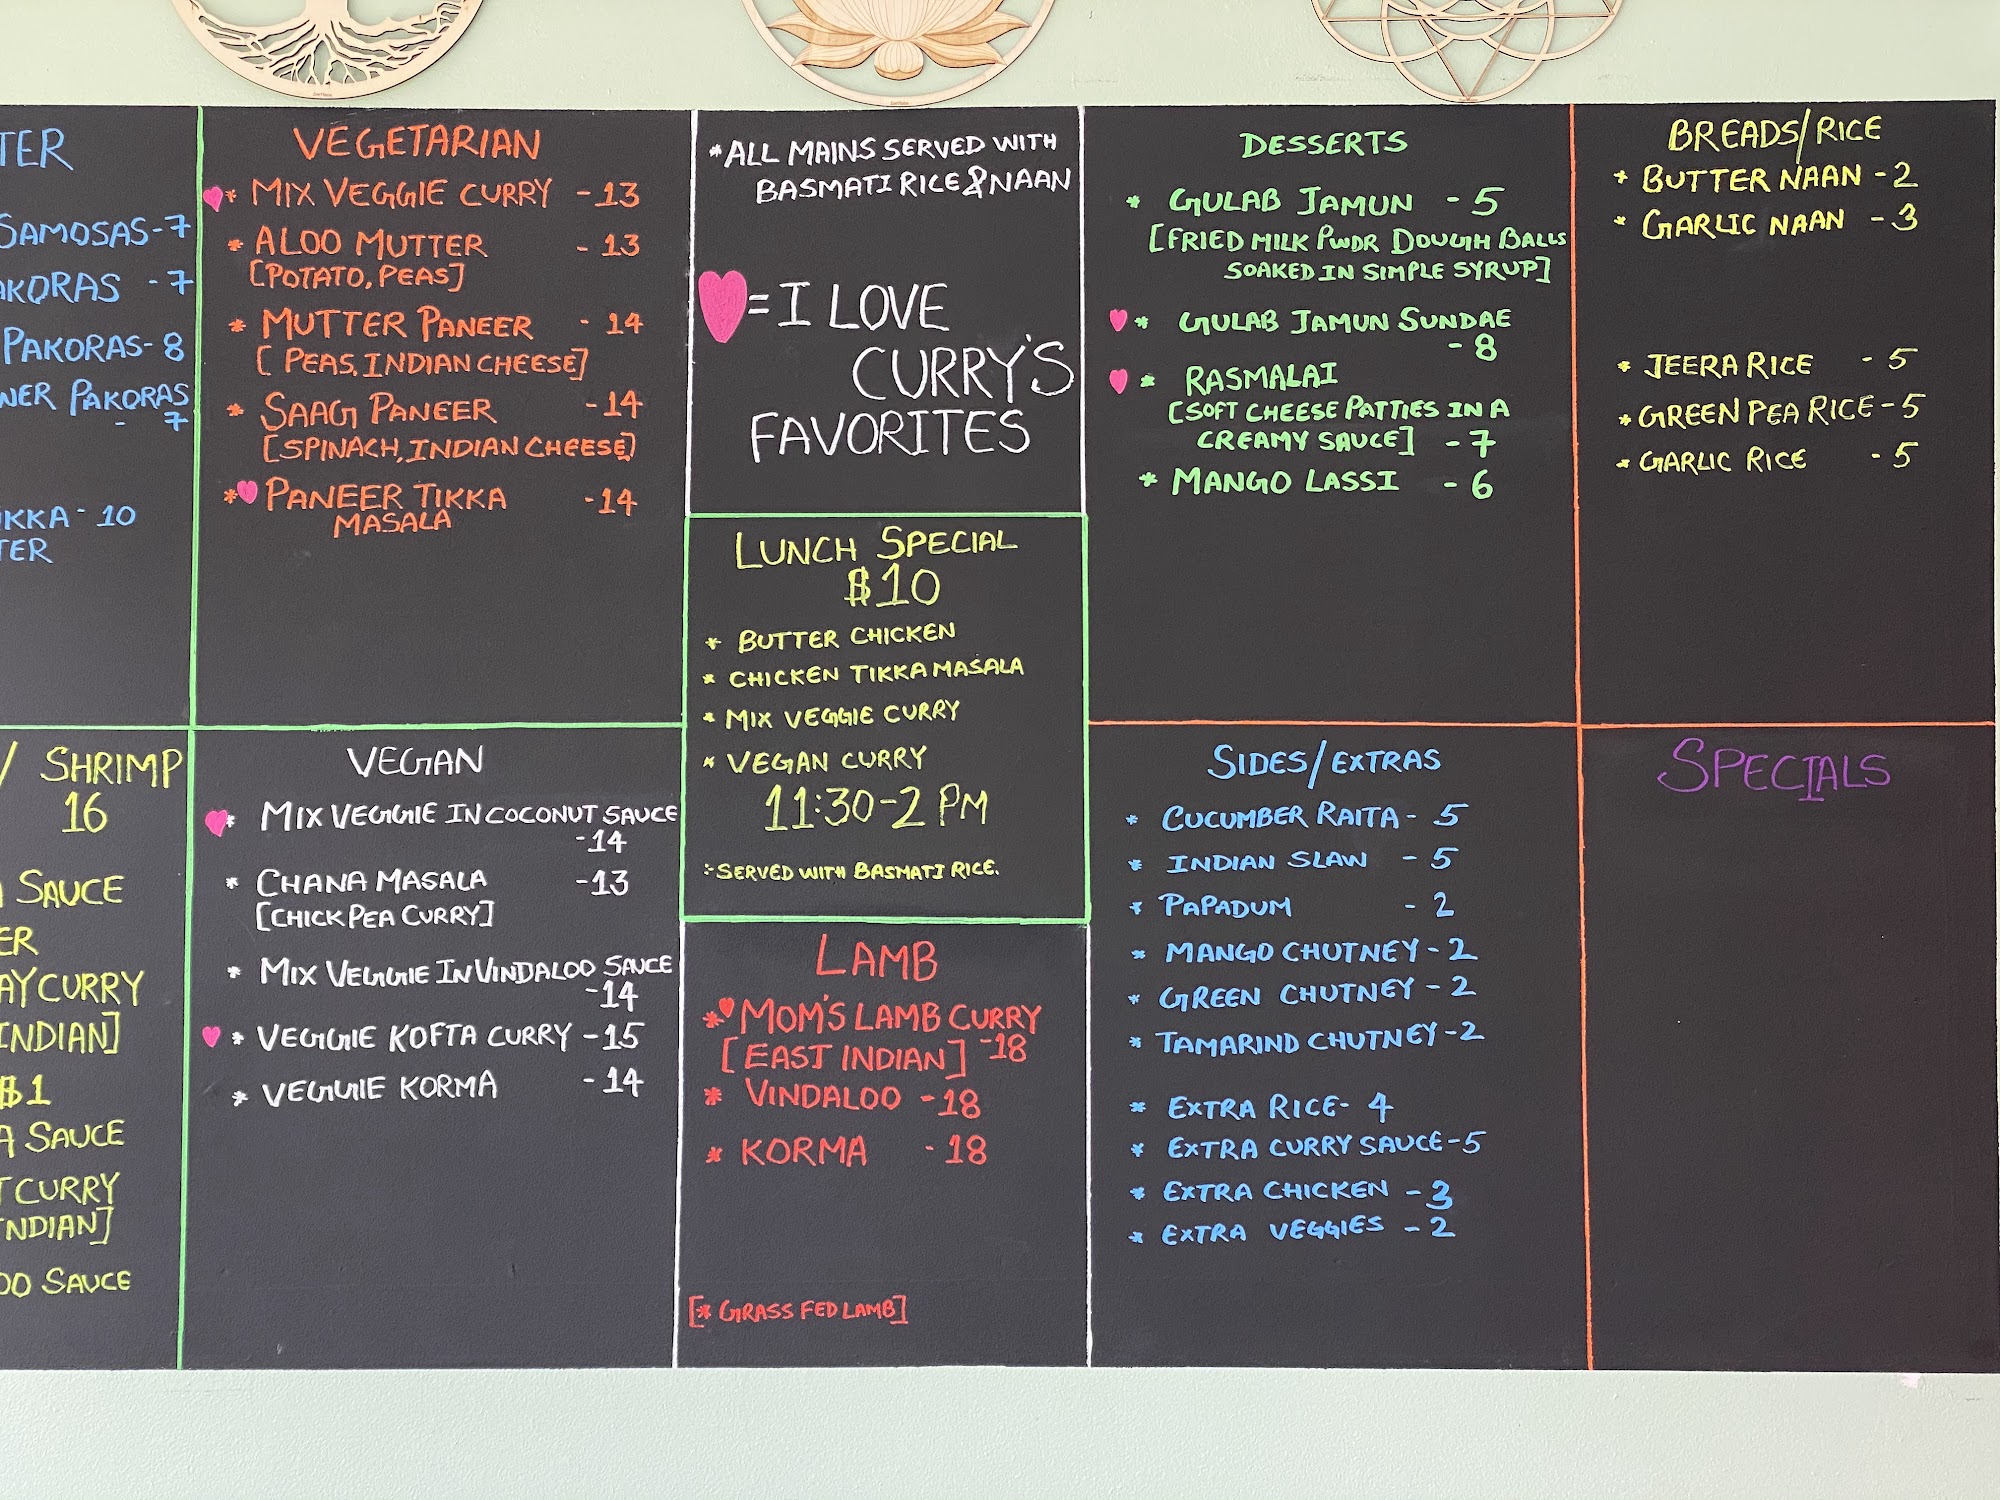 TER
SAMOSAS-7
AKORAS -7
PAKORAS-8
NER PAKORAS
- 7
IKKA-10
TER
/ SHRIMP
16
SAUCE
ER
AY CURRY
INDIAN]
$1
A SAUCE
T CURRY
INDIAN]
OO SAUCE
VEGETARIAN
* MIX VEGGIE CURRY -13
* ALOO MUTTER -13
[POTATO, PEAS]
* MUTTER PANEER -14
[PEAS, INDIAN CHEESE]
* SAAG PANEER -14
[SPINACH, INDIAN CHEESE]
* PANEER TIKKA -14
MASALA
VEGAN
* MIX VEGGIE IN COCONUT SAUCE
-14
* CHANA MASALA -13
[CHICK PEA CURRY]
* MIX VEGGIE IN VINDALOO SAUCE
-14
* VEGGIE KOFTA CURRY -15
* VEGGIE KORMA -14
*ALL MAINS SERVED WITH
BASMATI RICE & NAAN
= I LOVE
CURRY'S
FAVORITES
LUNCH SPECIAL
$10
* BUTTER CHICKEN
* CHICKEN TIKKA MASALA
* MIX VEGGIE CURRY
* VEGAN CURRY
11:30-2 PM
:-SERVED WITH BASMATI RICE.
LAMB
* MOM'S LAMB CURRY
[EAST INDIAN] -18
* VINDALOO -18
* KORMA -18
[* GRASS FED LAMB]
DESSERTS
* GULAB JAMUN -5
[FRIED MILK PWDR DOUGH BALLS
SOAKED IN SIMPLE SYRUP]
* GULAB JAMUN SUNDAE
-8
* RASMALAI
[SOFT CHEESE PATTIES IN A
CREAMY SAUCE] -7
* MANGO LASSI -6
SIDES/EXTRAS
* CUCUMBER RAITA - 5
* INDIAN SLAW - 5
* PAPADUM - 2
* MANGO CHUTNEY-2
* GREEN CHUTNEY-2
* TAMARIND CHUTNEY-2
* EXTRA RICE- 4
* EXTRA CURRY SAUCE-5
* EXTRA CHICKEN -3
* EXTRA VEGGIES -2
BREADS/RICE
* BUTTER NAAN -2
* GARLIC NAAN -3
* JEERA RICE -5
* GREEN PEA RICE-5
* GARLIC RICE -5
SPECIALS